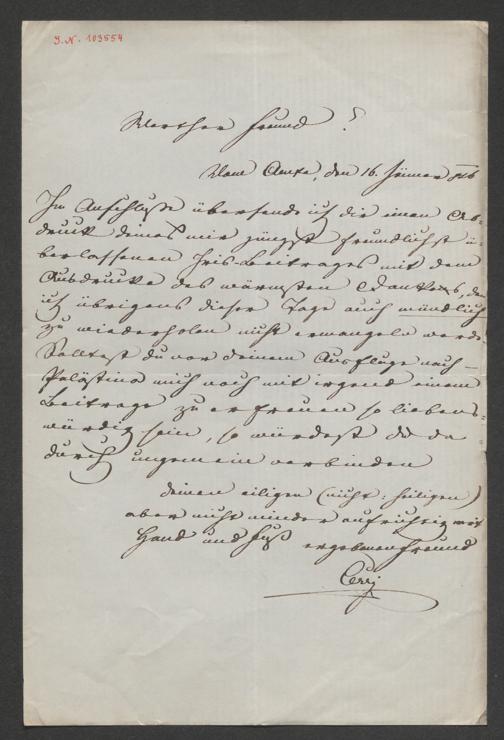 J.N. 103554
Werther Freund!
Vom Amte, den 16. Jänner 846
Im Anschluße übersende ich dir einen Ab-
druck deines mir jüngst freundlichst ü-
berlassenen Iris-Beitrages mit dem
Ausdrucke des wärmsten Dankes, den
ich übrigens dieser Tage auch mündlich
zu wiederholen nicht ermangeln werde.
Solltest du vor deinem Ausfluge nach
Palästina mich noch mit irgend einem
Beitrage zu erfreuen so liebens-
würdig sein, so würdest du da
durch ungemein verbinden
deinen eiligen (nicht: heiligen)
aber nicht minder aufrichtig mit
Hand und Fuß ergebenen Freund